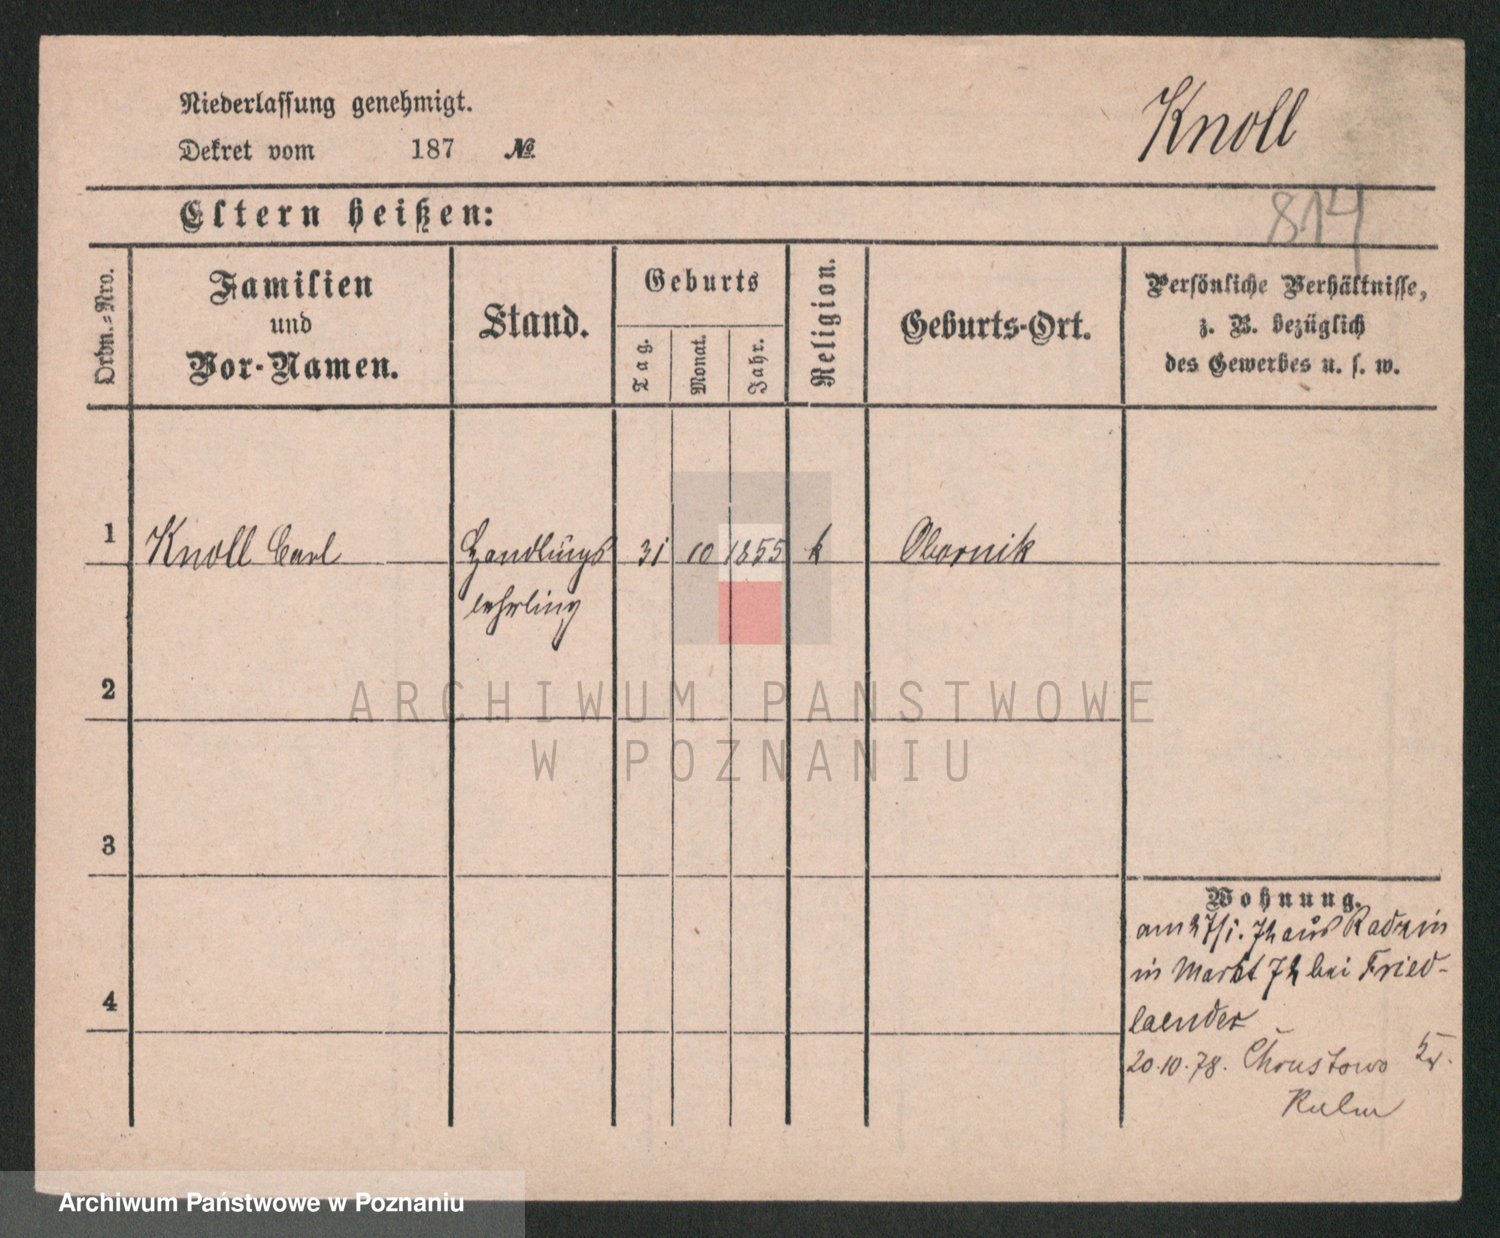 Niederlassung genehmigt.
Knoll
Dekret vom 187 №
Eltern heißen:
814
Ordn.-Nro.
Familien
und
Vor-Namen.
Stand.
Geburts
Tag.
Monat.
Jahr.
Religion.
Geburts-Ort.
Persönliche Verhältnisse,
z. B. bezüglich
des Gewerbes u. s. w.
1 Knoll Carl Handlungs 31 10 1855 k Obornik
lehrling
2
ARCHIWUM PAŃSTWOWE
W POZNANIU
3
Wohnung.
am 27/1. 72 aus Radzin
in Markt 72 bei Fried-
4
laender
20.10.78. Chrustowo
Archiwum Państwowe w Poznaniu